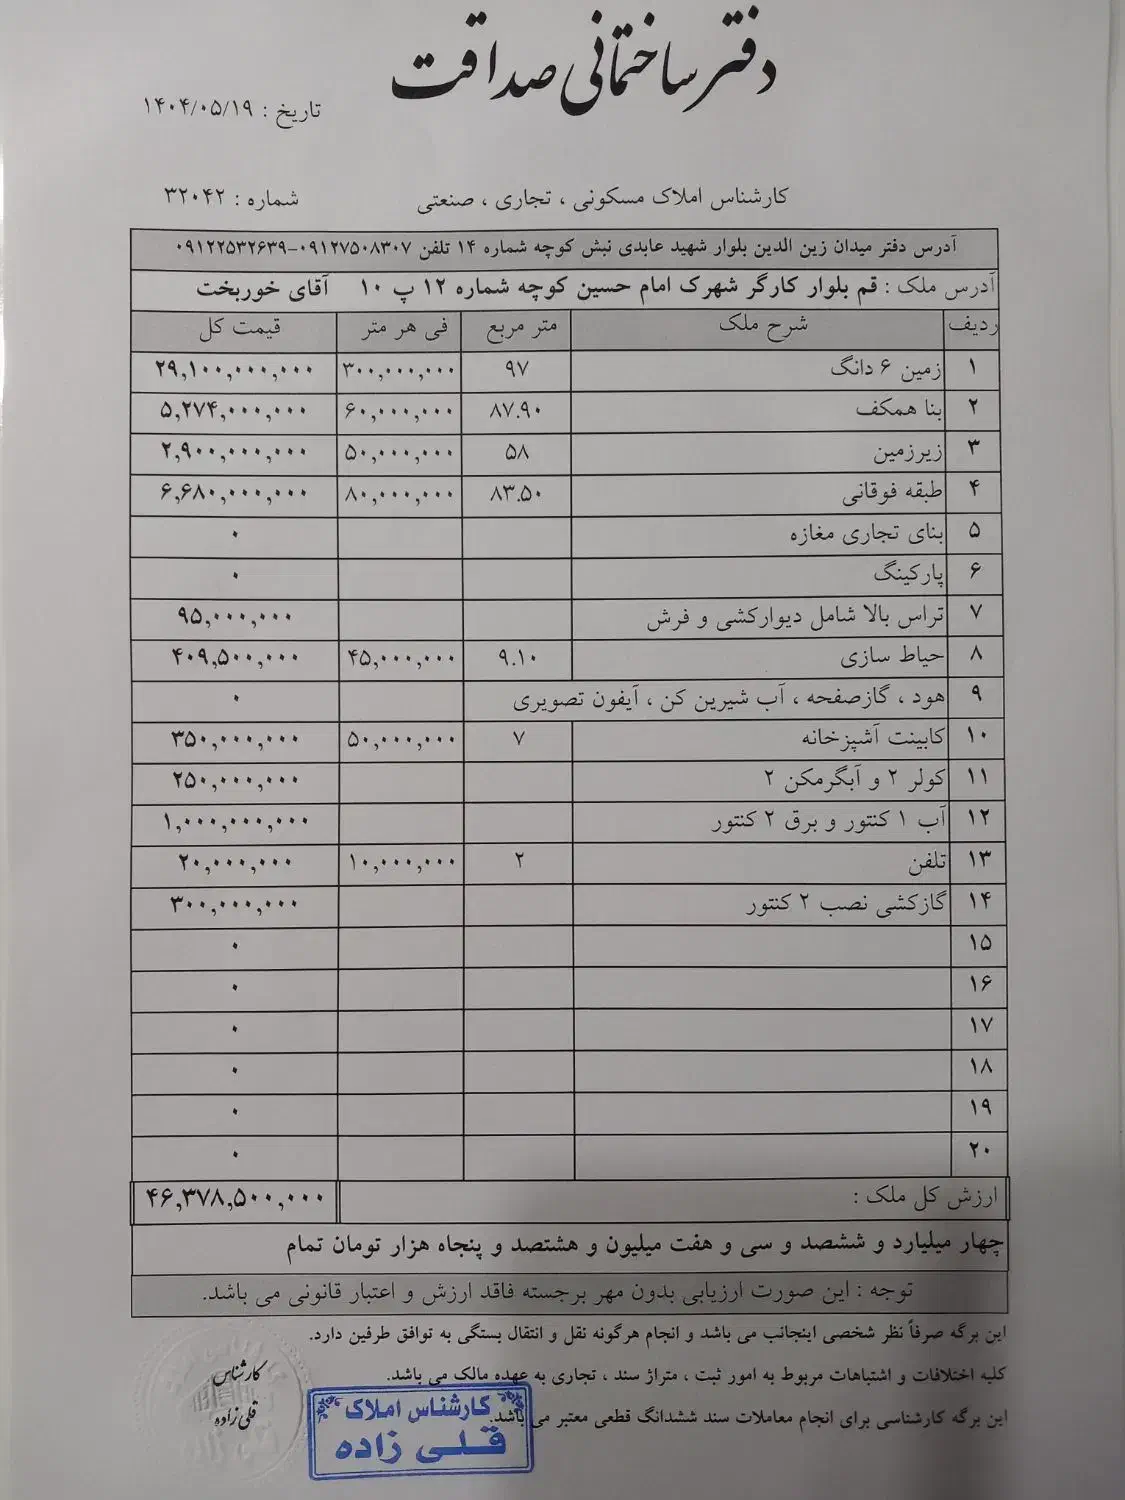 دفتر ساختمانی صداقت
تاریخ : ۱۴۰۴/۰۵/۱۹
کارشناس املاک مسکونی ، تجاری ، صنعتی
شماره : ۳۲۰۴۲
آدرس دفتر میدان زین الدین بلوار شهید عابدی نبش کوچه شماره ۱۴ تلفن ۰۹۱۲۷۵۰۸۳۰۷-۰۹۱۲۲۵۳۲۶۳۹
آدرس ملک : قم بلوار کارگر شهرک امام حسین کوچه شماره ۱۲ پ ۱۰ آقای خوربخت
ردیف شرح ملک متر مربع فی هر متر قیمت کل
۱ زمین ۶ دانگ ۹۷ ۳۰۰,۰۰۰,۰۰۰ ۲۹,۱۰۰,۰۰۰,۰۰۰
۲ بنا همکف ۸۷.۹۰ ۶۰,۰۰۰,۰۰۰ ۵,۲۷۴,۰۰۰,۰۰۰
۳ زیرزمین ۵۸ ۵۰,۰۰۰,۰۰۰ ۲,۹۰۰,۰۰۰,۰۰۰
۴ طبقه فوقانی ۸۳.۵۰ ۸۰,۰۰۰,۰۰۰ ۶,۶۸۰,۰۰۰,۰۰۰
۵ بنای تجاری مغازه ۰
۶ پارکینگ ۰
۷ تراس بالا شامل دیوارکشی و فرش ۹۵,۰۰۰,۰۰۰
۸ حیاط سازی ۹.۱۰ ۴۵,۰۰۰,۰۰۰ ۴۰۹,۵۰۰,۰۰۰
۹ هود ، گازصفحه ، آب شیرین کن ، آیفون تصویری ۰
۱۰ کابینت آشپزخانه ۷ ۵۰,۰۰۰,۰۰۰ ۳۵۰,۰۰۰,۰۰۰
۱۱ کولر ۲ و آبگرمکن ۲ ۲۵۰,۰۰۰,۰۰۰
۱۲ آب ۱ کنتور و برق ۲ کنتور ۱,۰۰۰,۰۰۰,۰۰۰
۱۳ تلفن ۲ ۱۰,۰۰۰,۰۰۰ ۲۰,۰۰۰,۰۰۰
۱۴ گازکشی نصب ۲ کنتور ۳۰۰,۰۰۰,۰۰۰
۱۵ ۰
۱۶ ۰
۱۷ ۰
۱۸ ۰
۱۹ ۰
۲۰ ۰
ارزش کل ملک : ۴۶,۳۷۸,۵۰۰,۰۰۰
چهار میلیارد و ششصد و سی و هفت میلیون و هشتصد و پنجاه هزار تومان تمام
توجه : این صورت ارزیابی بدون مهر برجسته فاقد ارزش و اعتبار قانونی می باشد.
این برگه صرفاً نظر شخصی اینجانب می باشد و انجام هرگونه نقل و انتقال بستگی به توافق طرفین دارد.
کلیه اختلافات و اشتباهات مربوط به امور ثبت ، متراژ سند ، تجاری به عهده مالک می باشد.
این برگه کارشناسی برای انجام معاملات سند ششدانگ قطعی معتبر می باشد.
کارشناس
قلی زاده
کارشناس املاک
قلی زاده